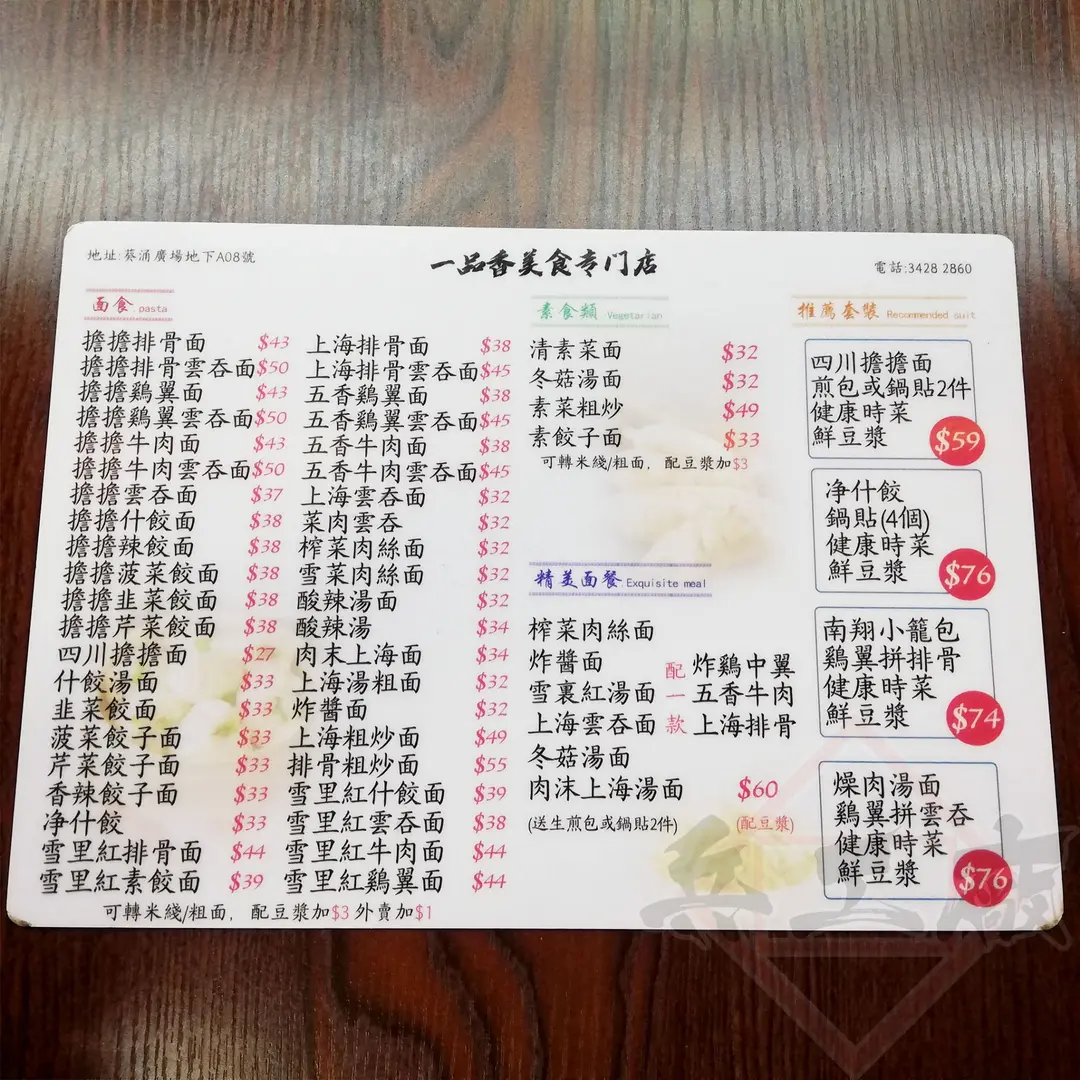 地址:葵涌廣場地下A08號
一品香美食专门店
電話:3428 2860
面食 pasta
擔擔排骨面 $43
擔擔排骨雲吞面 $50
擔擔鷄翼面 $43
擔擔鷄翼雲吞面 $50
擔擔牛肉面 $43
擔擔牛肉雲吞面 $50
擔擔雲吞面 $37
擔擔什餃面 $38
擔擔辣餃面 $38
擔擔菠菜餃面 $38
擔擔韭菜餃面 $38
擔擔芹菜餃面 $38
四川擔擔面 $27
什餃湯面 $33
韭菜餃面 $33
菠菜餃子面 $33
芹菜餃子面 $33
香辣餃子面 $33
净什餃 $33
雪里紅排骨面 $44
雪里紅素餃面 $39
上海排骨面 $38
上海排骨雲吞面 $45
五香鷄翼面 $38
五香鷄翼雲吞面 $45
五香牛肉面 $38
五香牛肉雲吞面 $45
上海雲吞面 $32
菜肉雲吞 $32
榨菜肉絲面 $32
雪菜肉絲面 $32
酸辣湯面 $32
酸辣湯 $34
肉末上海面 $34
上海湯粗面 $32
炸醬面 $32
上海粗炒面 $49
排骨粗炒面 $55
雪里紅什餃面 $39
雪里紅雲吞面 $38
雪里紅牛肉面 $44
雪里紅鷄翼面 $44
可轉米綫/粗面，配豆漿加$3 外賣加$1
素食類 Vegetarian
清素菜面 $32
冬菇湯面 $32
素菜粗炒 $49
素餃子面 $33
可轉米綫/粗面，配豆漿加$3
精美面餐 Exquisite meal
榨菜肉絲面
炸醬面
雪裏紅湯面
上海雲吞面
冬菇湯面
肉沫上海湯面
配一款
炸鷄中翼
五香牛肉
上海排骨
$60
(送生煎包或鍋貼2件)
(配豆漿)
推薦套裝 Recommended suit
四川擔擔面
煎包或鍋貼2件
健康時菜
鮮豆漿
$59
净什餃
鍋貼(4個)
健康時菜
鮮豆漿
$76
南翔小籠包
鷄翼拼排骨
健康時菜
鮮豆漿
$74
燥肉湯面
鷄翼拼雲吞
健康時菜
鮮豆漿
$76